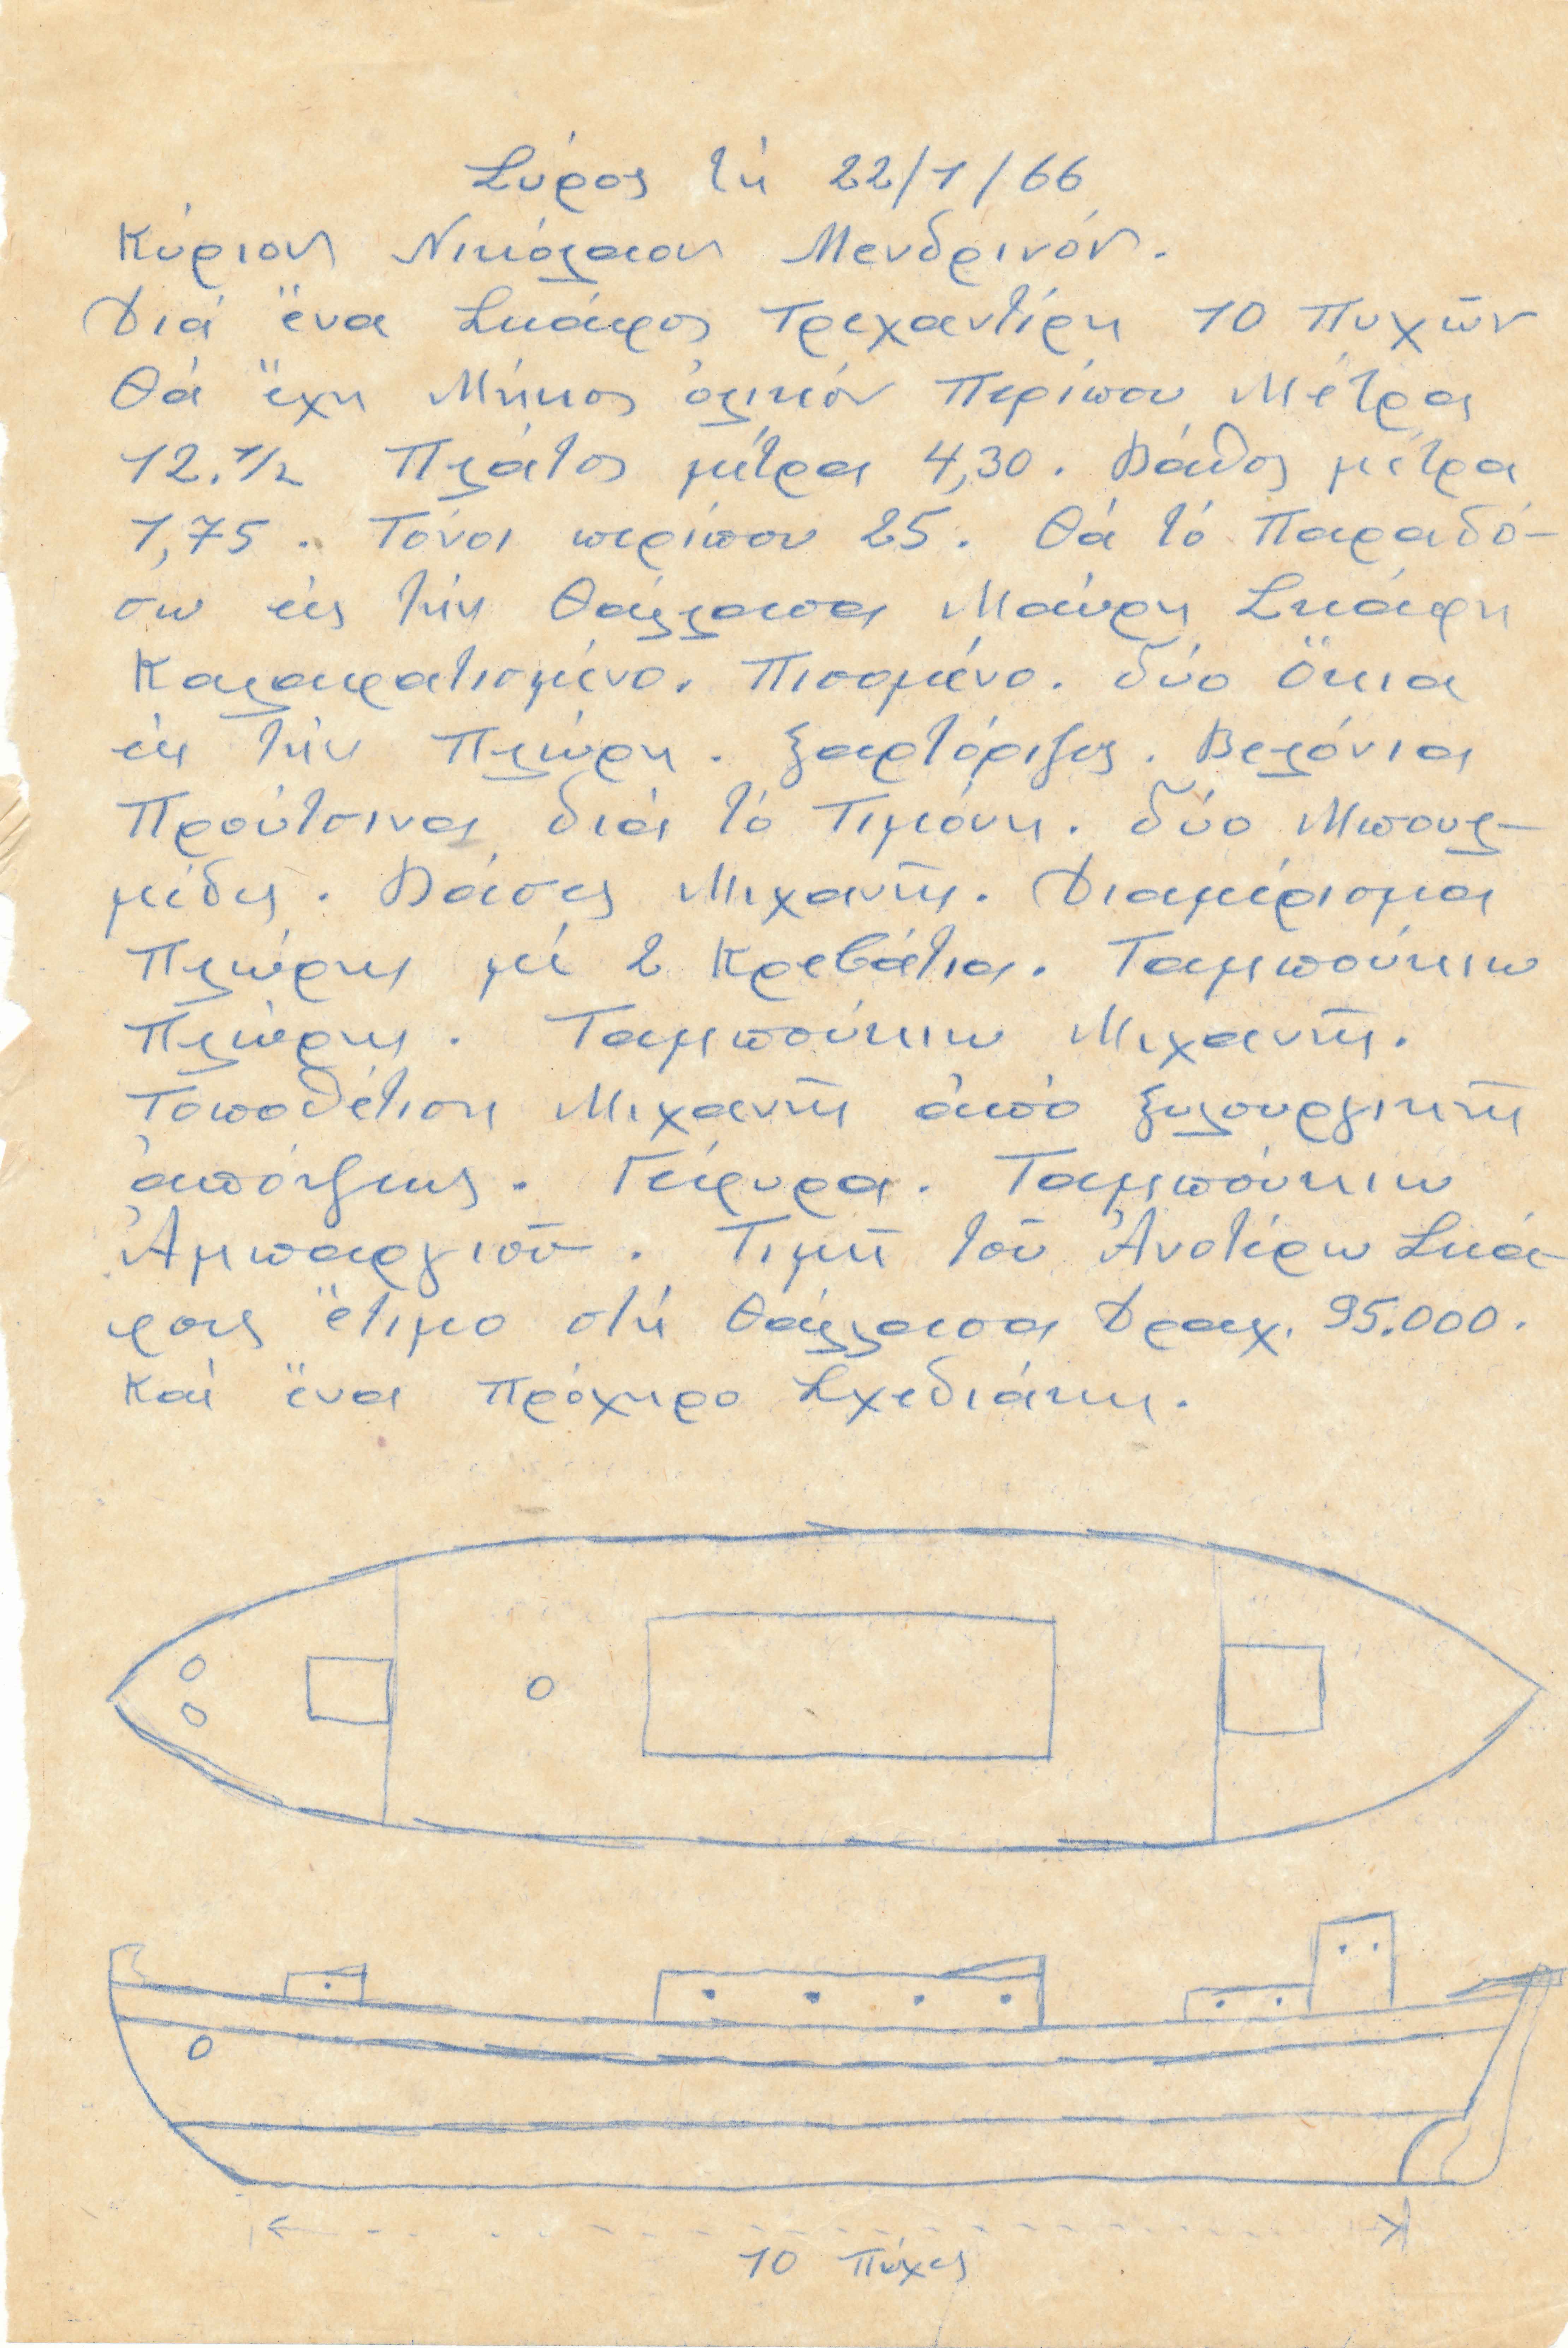 Σύρος τή 22/1/66
Κύριον Νικόλαον Μενδρινόν.
Διά ἕνα Σκάφος Τρεχαντίρη 10 Πυχῶν
θά ἔχη Μήκος ὁλικόν Περίπου Μέτρα
12.1/2 Πλάτος μέτρα 4,30. Βάθος μέτρα
1,75. Τόνοι περίπου 25. θά τό Παραδό-
σω εἰς τήν θάλλασσα Μαύρη Σκάφη
Καλαφατισμένο. Πισομένο. δύο Ὄκια
εἰς τήν Πλώρη. Ξαρτόριζες. Βελόνια
Προύτσινα διά τό Τιμόνη. δύο Μπουλ-
μέδες. Βάσεις Μιχανῆς. Διαμέρισμα
Πλώρης μέ 2 Κρεβάτια. Ταμπούκιω
Πλώρης. Ταμπούκιω Μιχανῆς.
Τοποθέτιση Μιχανῆς ἀπό ξυλουργικῆς
ἀπόψεως. Γέφυρα. Ταμπούκιω
Ἀμπαργιοῦ. Τιμῆ τοῦ Ἀνοτέρω Σκά-
φους ἔτιμο στή θάλλασσα Δραχ. 95.000.
Καί ἕνα πρόχηρο Σχεδιάκη.
10 Πύχες